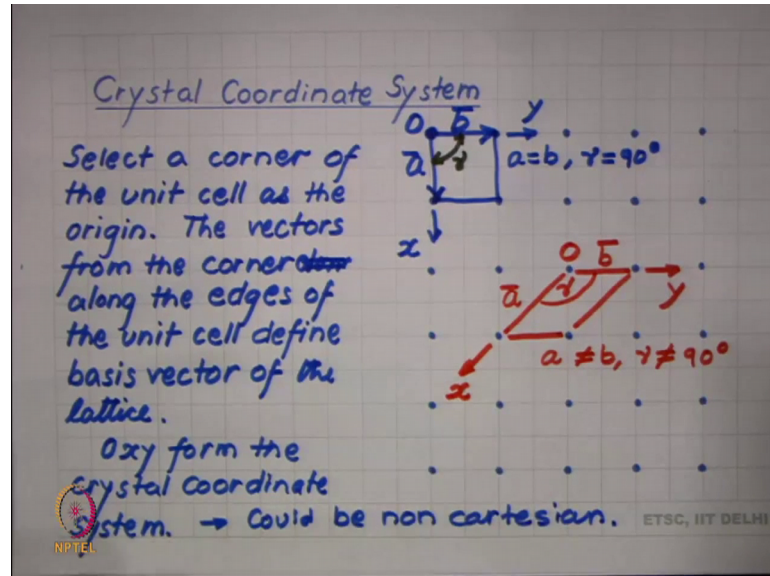 Crystal Coordinate System
Select a corner of
the unit cell as the
origin. The vectors
from the corner
along the edges of
the unit cell define
basis vector of the
lattice.
Oxy form the
crystal coordinate
system. → Could be non cartesian.
O b̄ y
ā γ a=b, γ=90°
x
O b̄
ā γ y
a ≠ b, γ ≠ 90°
x
NPTEL
ETSC, IIT DELHI